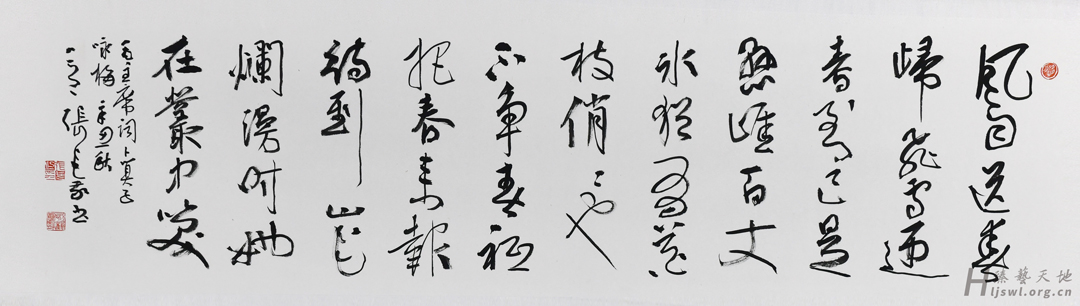 風雨送春
歸飛雪迎
春到已是
懸崖百丈
冰猶有花
枝俏〻也
不争春祗
把春来報
待到山花
爛漫时她
在叢中笑
毛主席词卜算子
咏梅 辛丑秋
张 书
臻藝天地
Hljswl.org.cn